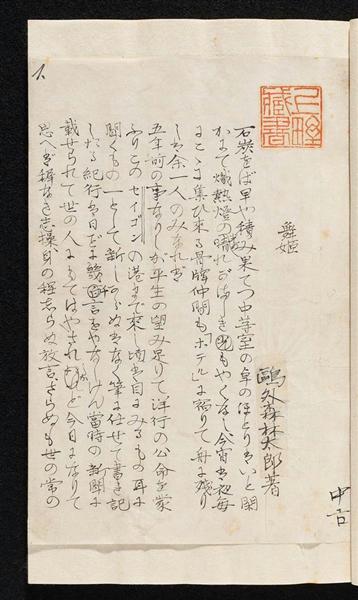 舞姫
鷗外森林太郎著
石炭をば早や積み果てつ中等室の卓のほとりはいと閑
かにて熾熱燈の晴れがましき光もやくなし今宵は夜毎
にこゝに集ひ来る骨牌仲間も「ホテル」に宿りて舟に残り
しは余一人のみなれば
五年前の事なりしが平生の望み足りて洋行の公命を蒙
ふりこのセイゴンの港まで来し頃は目にみるもの耳に
聞くもの一として新しからぬはなく筆に任せて書き記
しつる紀行は日ごとに幾千言をやなしけん當時の新聞に
載せられて世の人にもてはやされしかど今日になりて
思へば穉なき志操身の程志らぬ放言さらぬも世の常の
1.
藏書